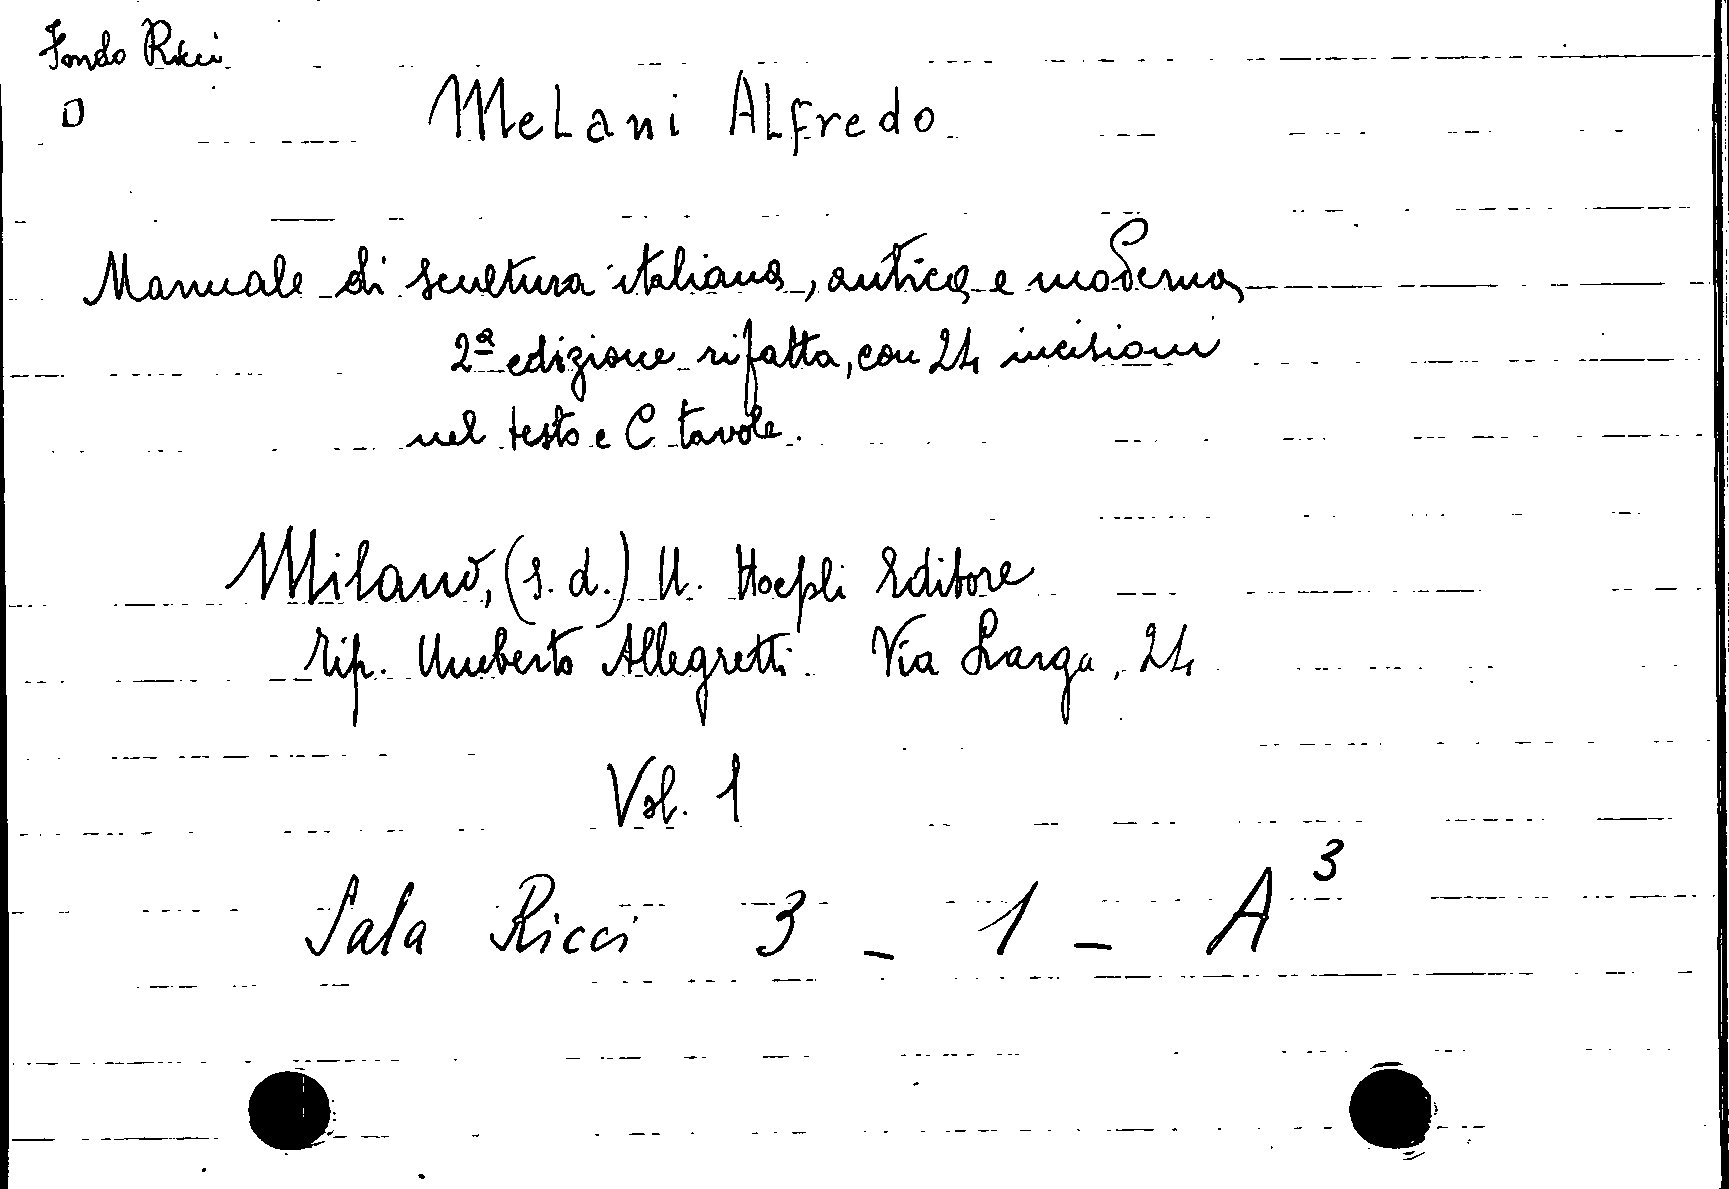 Fondo Ricci
D
Melani Alfredo
Manuale di scultura italiana, antica e moderna
2ª edizione rifatta, con 24 incisioni
nel testo e C tavole.
Milano, (s.d.) U. Hoepli Editore
Tip. Umberto Allegretti. Via Larga, 24
Vol. 1
Sala Ricci 3 - 1 - A³